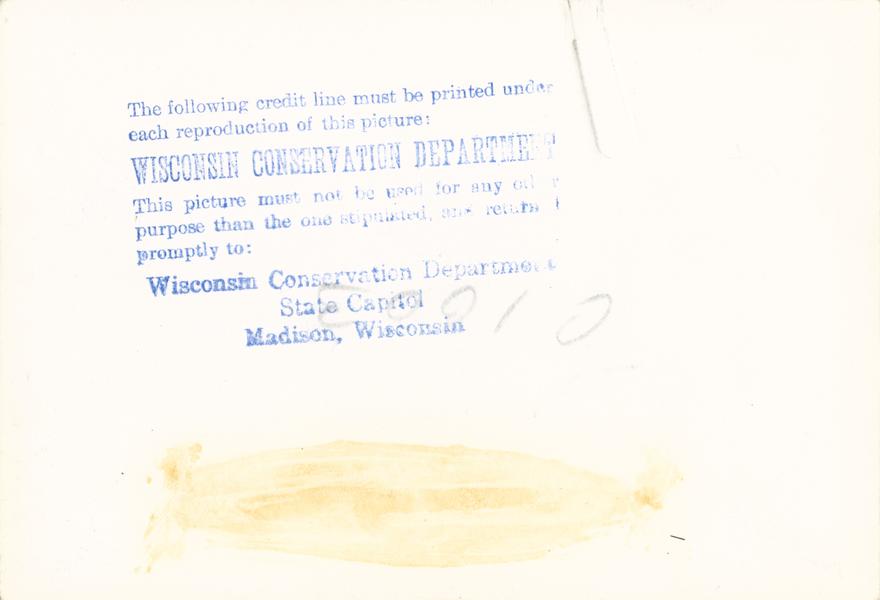 The following credit line must be printed under
each reproduction of this picture:
WISCONSIN CONSERVATION DEPARTMENT
This picture must not be used for any
purpose than the one stipulated, and return
promptly to:
Wisconsin Conservation Department
State Capitol
Madison, Wisconsin